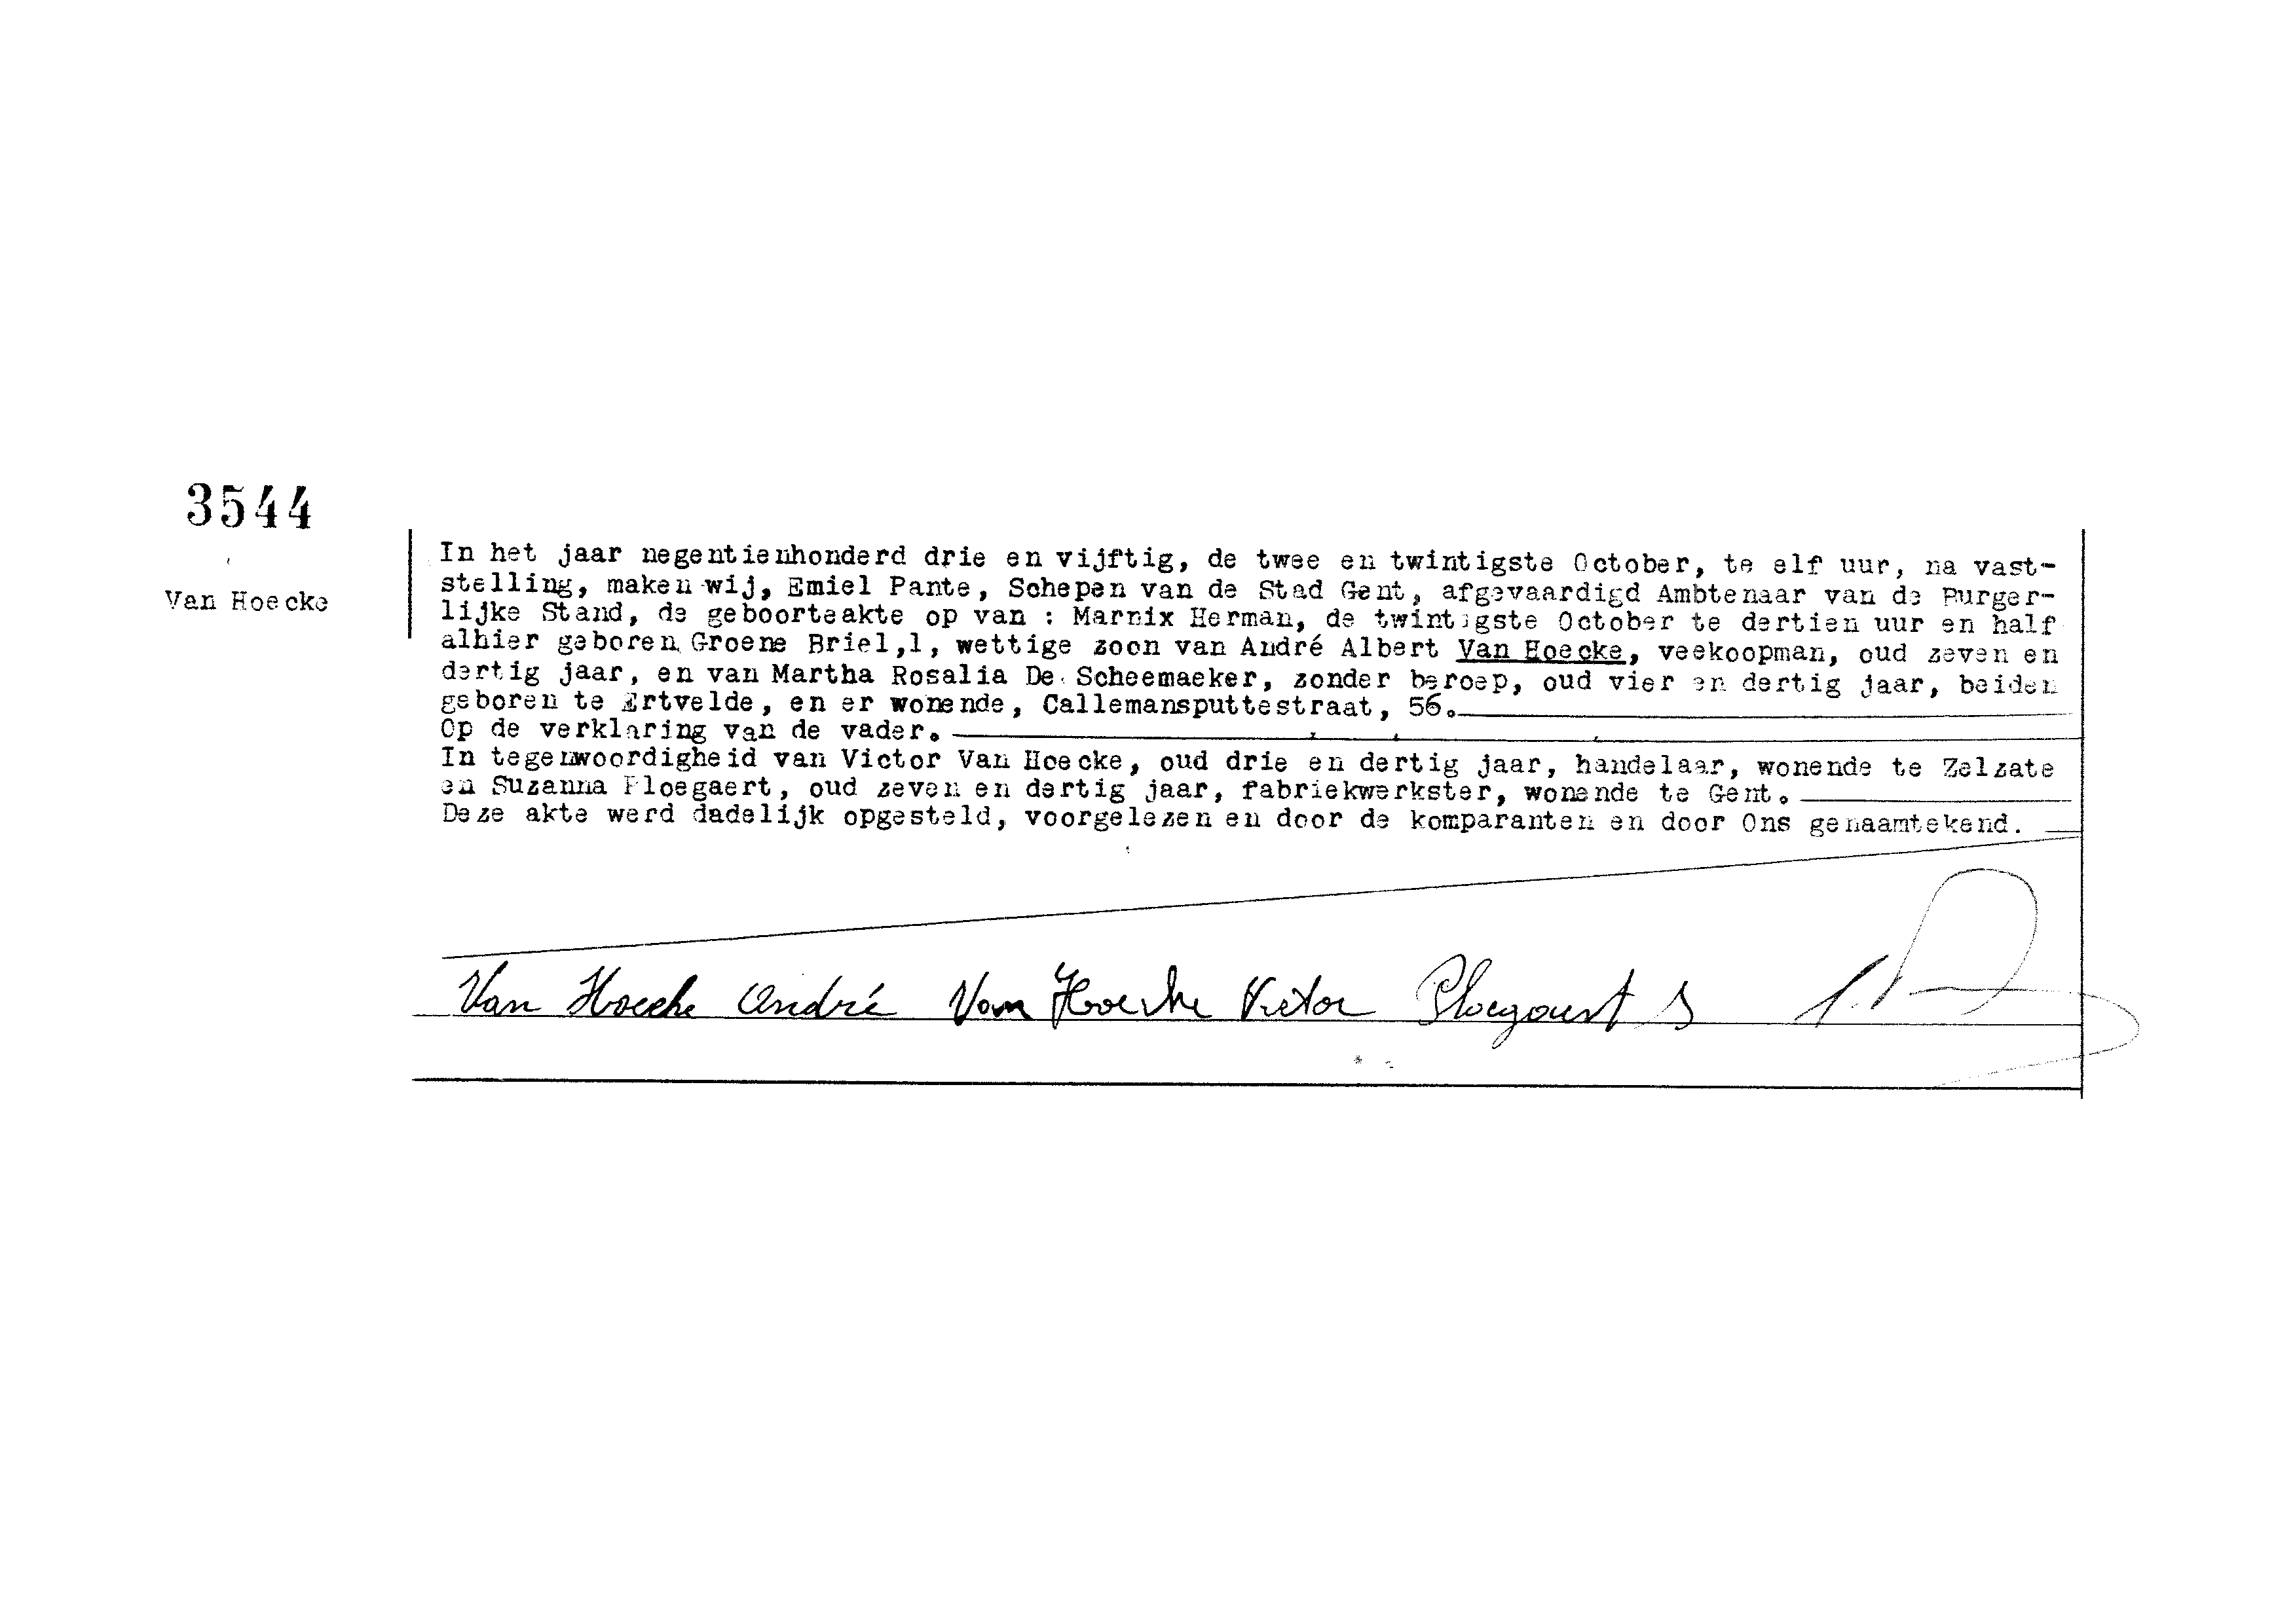 3544
Van Hoecke
In het jaar negentienhonderd drie en vijftig, de twee en twintigste October, te elf uur, na vast-
stelling, maken wij, Emiel Pante, Schepen van de Stad Gent, afgevaardigd Ambtenaar van de Burger-
lijke Stand, de geboorteakte op van : Marnix Herman, de twintigste October te dertien uur en half
alhier geboren Groene Briel,1, wettige zoon van André Albert Van Hoecke, veekoopman, oud zeven en
dertig jaar, en van Martha Rosalia De Scheemaeker, zonder beroep, oud vier en dertig jaar, beiden
geboren te Ertvelde, en er wonende, Callemansputtestraat, 56.
Op de verklaring van de vader.
In tegenwoordigheid van Victor Van Hoecke, oud drie en dertig jaar, handelaar, wonende te Zelzate
en Suzanna Ploegaert, oud zeven en dertig jaar, fabriekwerkster, wonende te Gent.
Deze akte werd dadelijk opgesteld, voorgelezen en door de komparanten en door Ons genaamtekend.
Van Hoecke André Van Hoecke Victor Ploegaert S